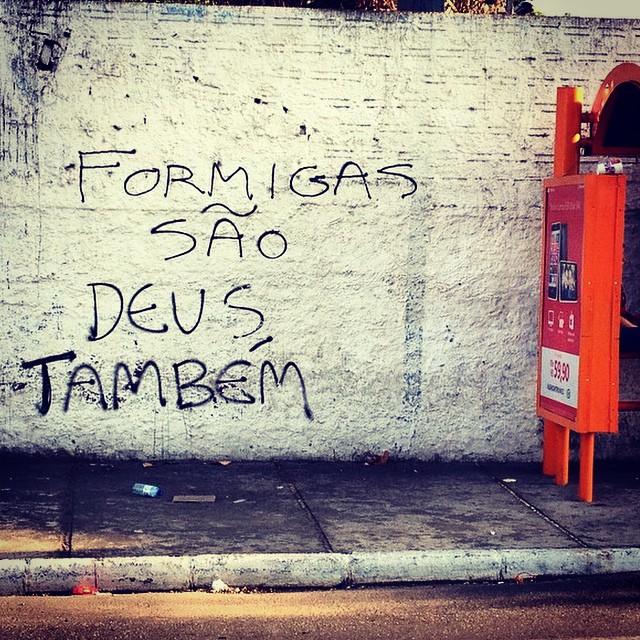 FORMIGAS
SÃO
DEUS
TAMBÉM
59,90